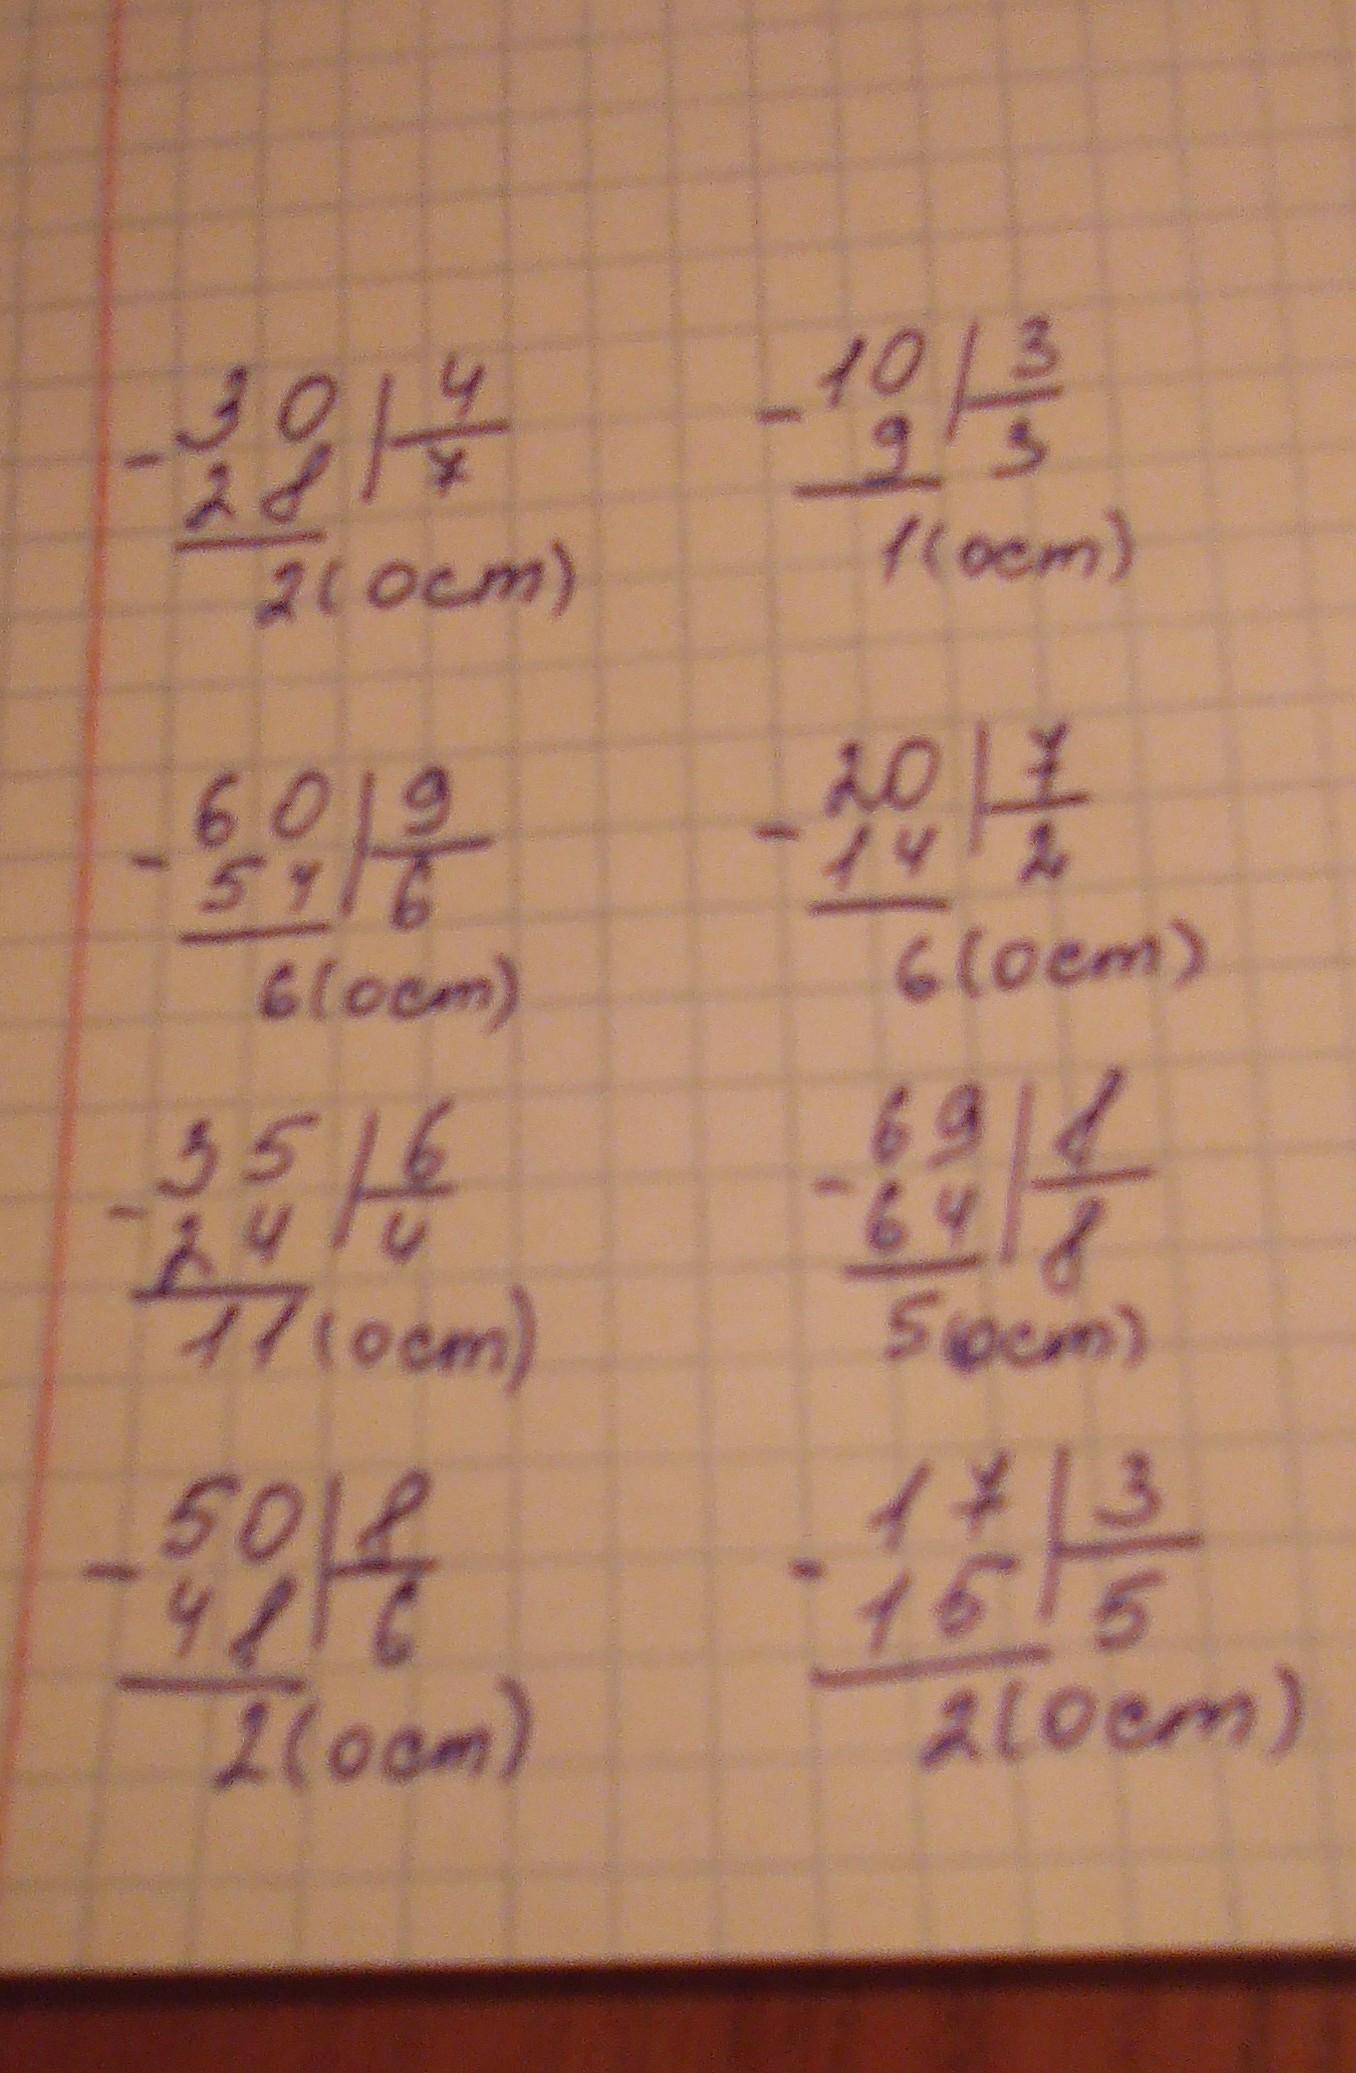 30 | 4
- 28 | 7
2 (ост)
10 | 3
- 9 | 3
1 (ост)
60 | 9
- 54 | 6
6 (ост)
20 | 7
- 14 | 2
6 (ост)
35 | 6
- 24 | 4
11 (ост)
69 | 8
- 64 | 8
5 (ост)
50 | 8
- 48 | 6
2 (ост)
17 | 3
- 15 | 5
2 (ост)